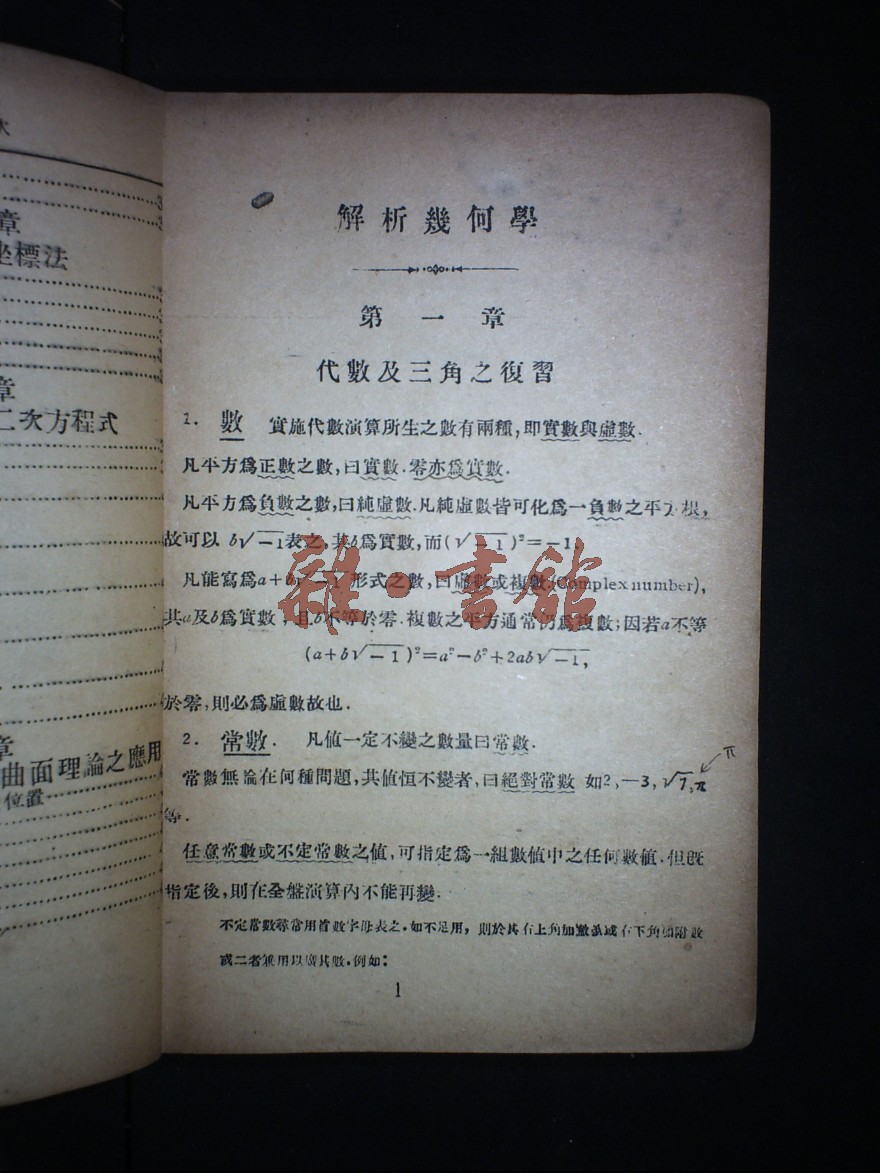 章
坐標法
章
二次方程式
章
曲面理論之應用
位置
解析幾何學
第一章
代數及三角之復習
1. 數 實施代數演算所生之數有兩種,即實數與虛數.
凡平方爲正數之數,曰實數.零亦爲實數.
凡平方爲負數之數,曰純虛數.凡純虛數皆可化爲一負數之平方根,
故可以 b√−1表之,其b爲實數,而(√−1)²=−1.
凡能寫爲a+b√−1形式之數,曰虛數或複數(Complex number),
其a及b爲實數,且b不等於零.複數之平方通常仍爲複數;因若a不等
(a+b√−1)²=a²−b²+2ab√−1,
於零,則必爲虛數故也.
2. 常數. 凡值一定不變之數量曰常數.
π
常數無論在何種問題,其值恒不變者,曰絕對常數 如2,−3,√7,π
等.
任意常數或不定常數之值,可指定爲一組數值中之任何數值.但旣
指定後,則在全盤演算內不能再變.
不定常數尋常用首數字母表之.如不足用, 則於其右上角加撇或右下角附數
或二者兼用以廣其數.例如:
1
雜·書館